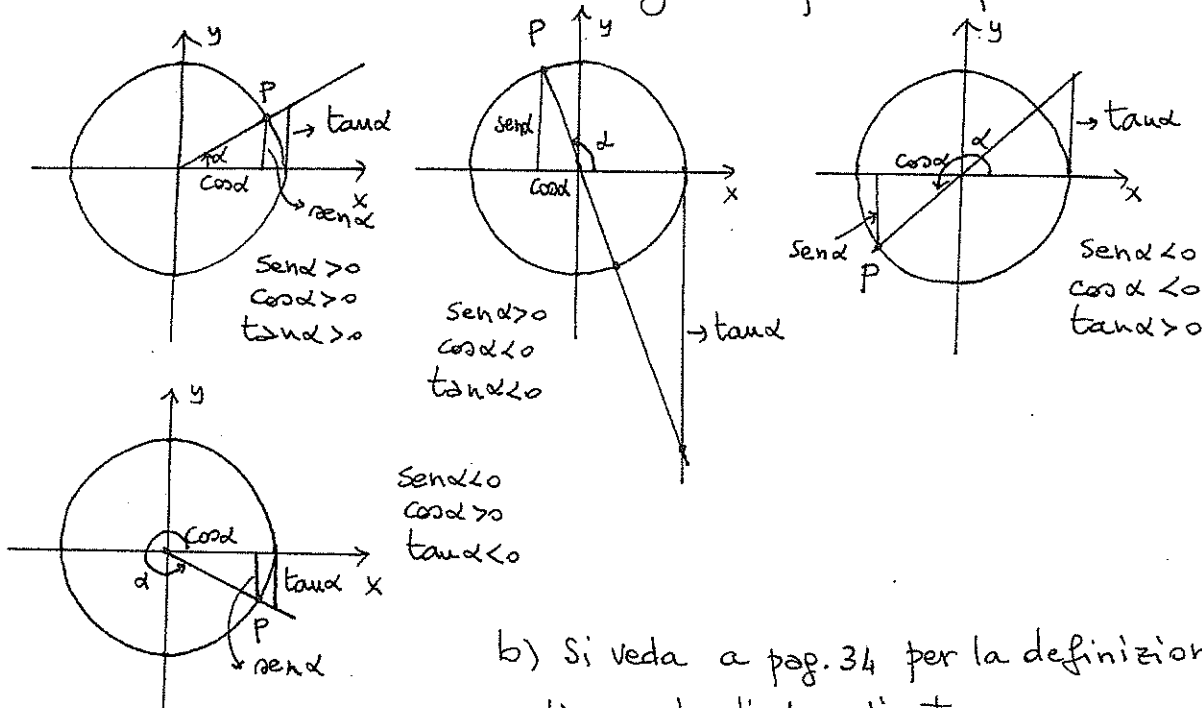 y
P
tanα
α
cosα
x
senα
senα>0
cosα>0
tanα>0
P
y
senα
α
cosα
x
tanα
senα>0
cosα<0
tanα<0
y
tanα
α
cosα
x
senα
P
senα<0
cosα<0
tanα>0
y
cosα
α
tanα
x
P
senα
senα<0
cosα>0
tanα<0
b) Si veda a pag. 34 per la definizion